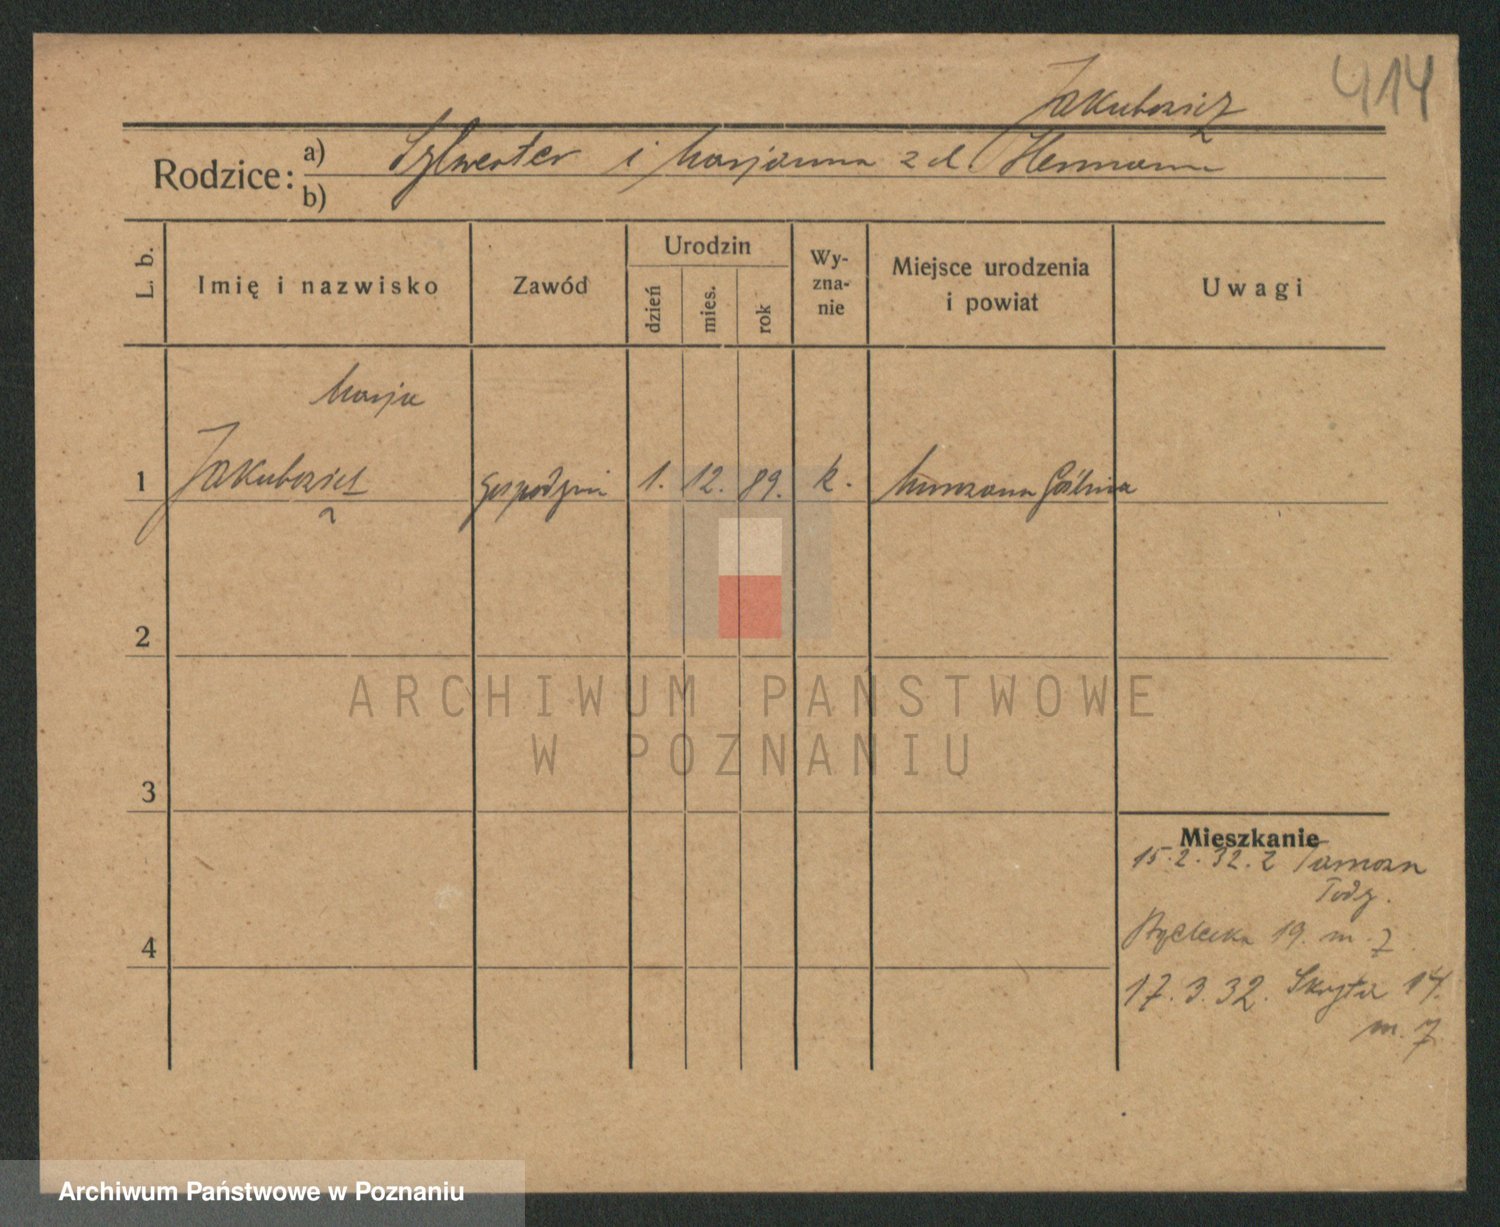 414
Jakubowicz
Rodzice: a) Sylwester i Marjanna z d. Hermann
b)
L. b.
Imię i nazwisko
Zawód
Urodzin
dzień
mies.
rok
Wy-
zna-
nie
Miejsce urodzenia
i powiat
Uwagi
Marja
1 gospodyni 1. 12. 89. k. Murowana Goślina
2
3
4
Mieszkanie
15.2.32. z
19. m. 7
17.3.32. Skryta 14.
m. 7.
ARCHIWUM PAŃSTWOWE
W POZNANIU
Archiwum Państwowe w Poznaniu